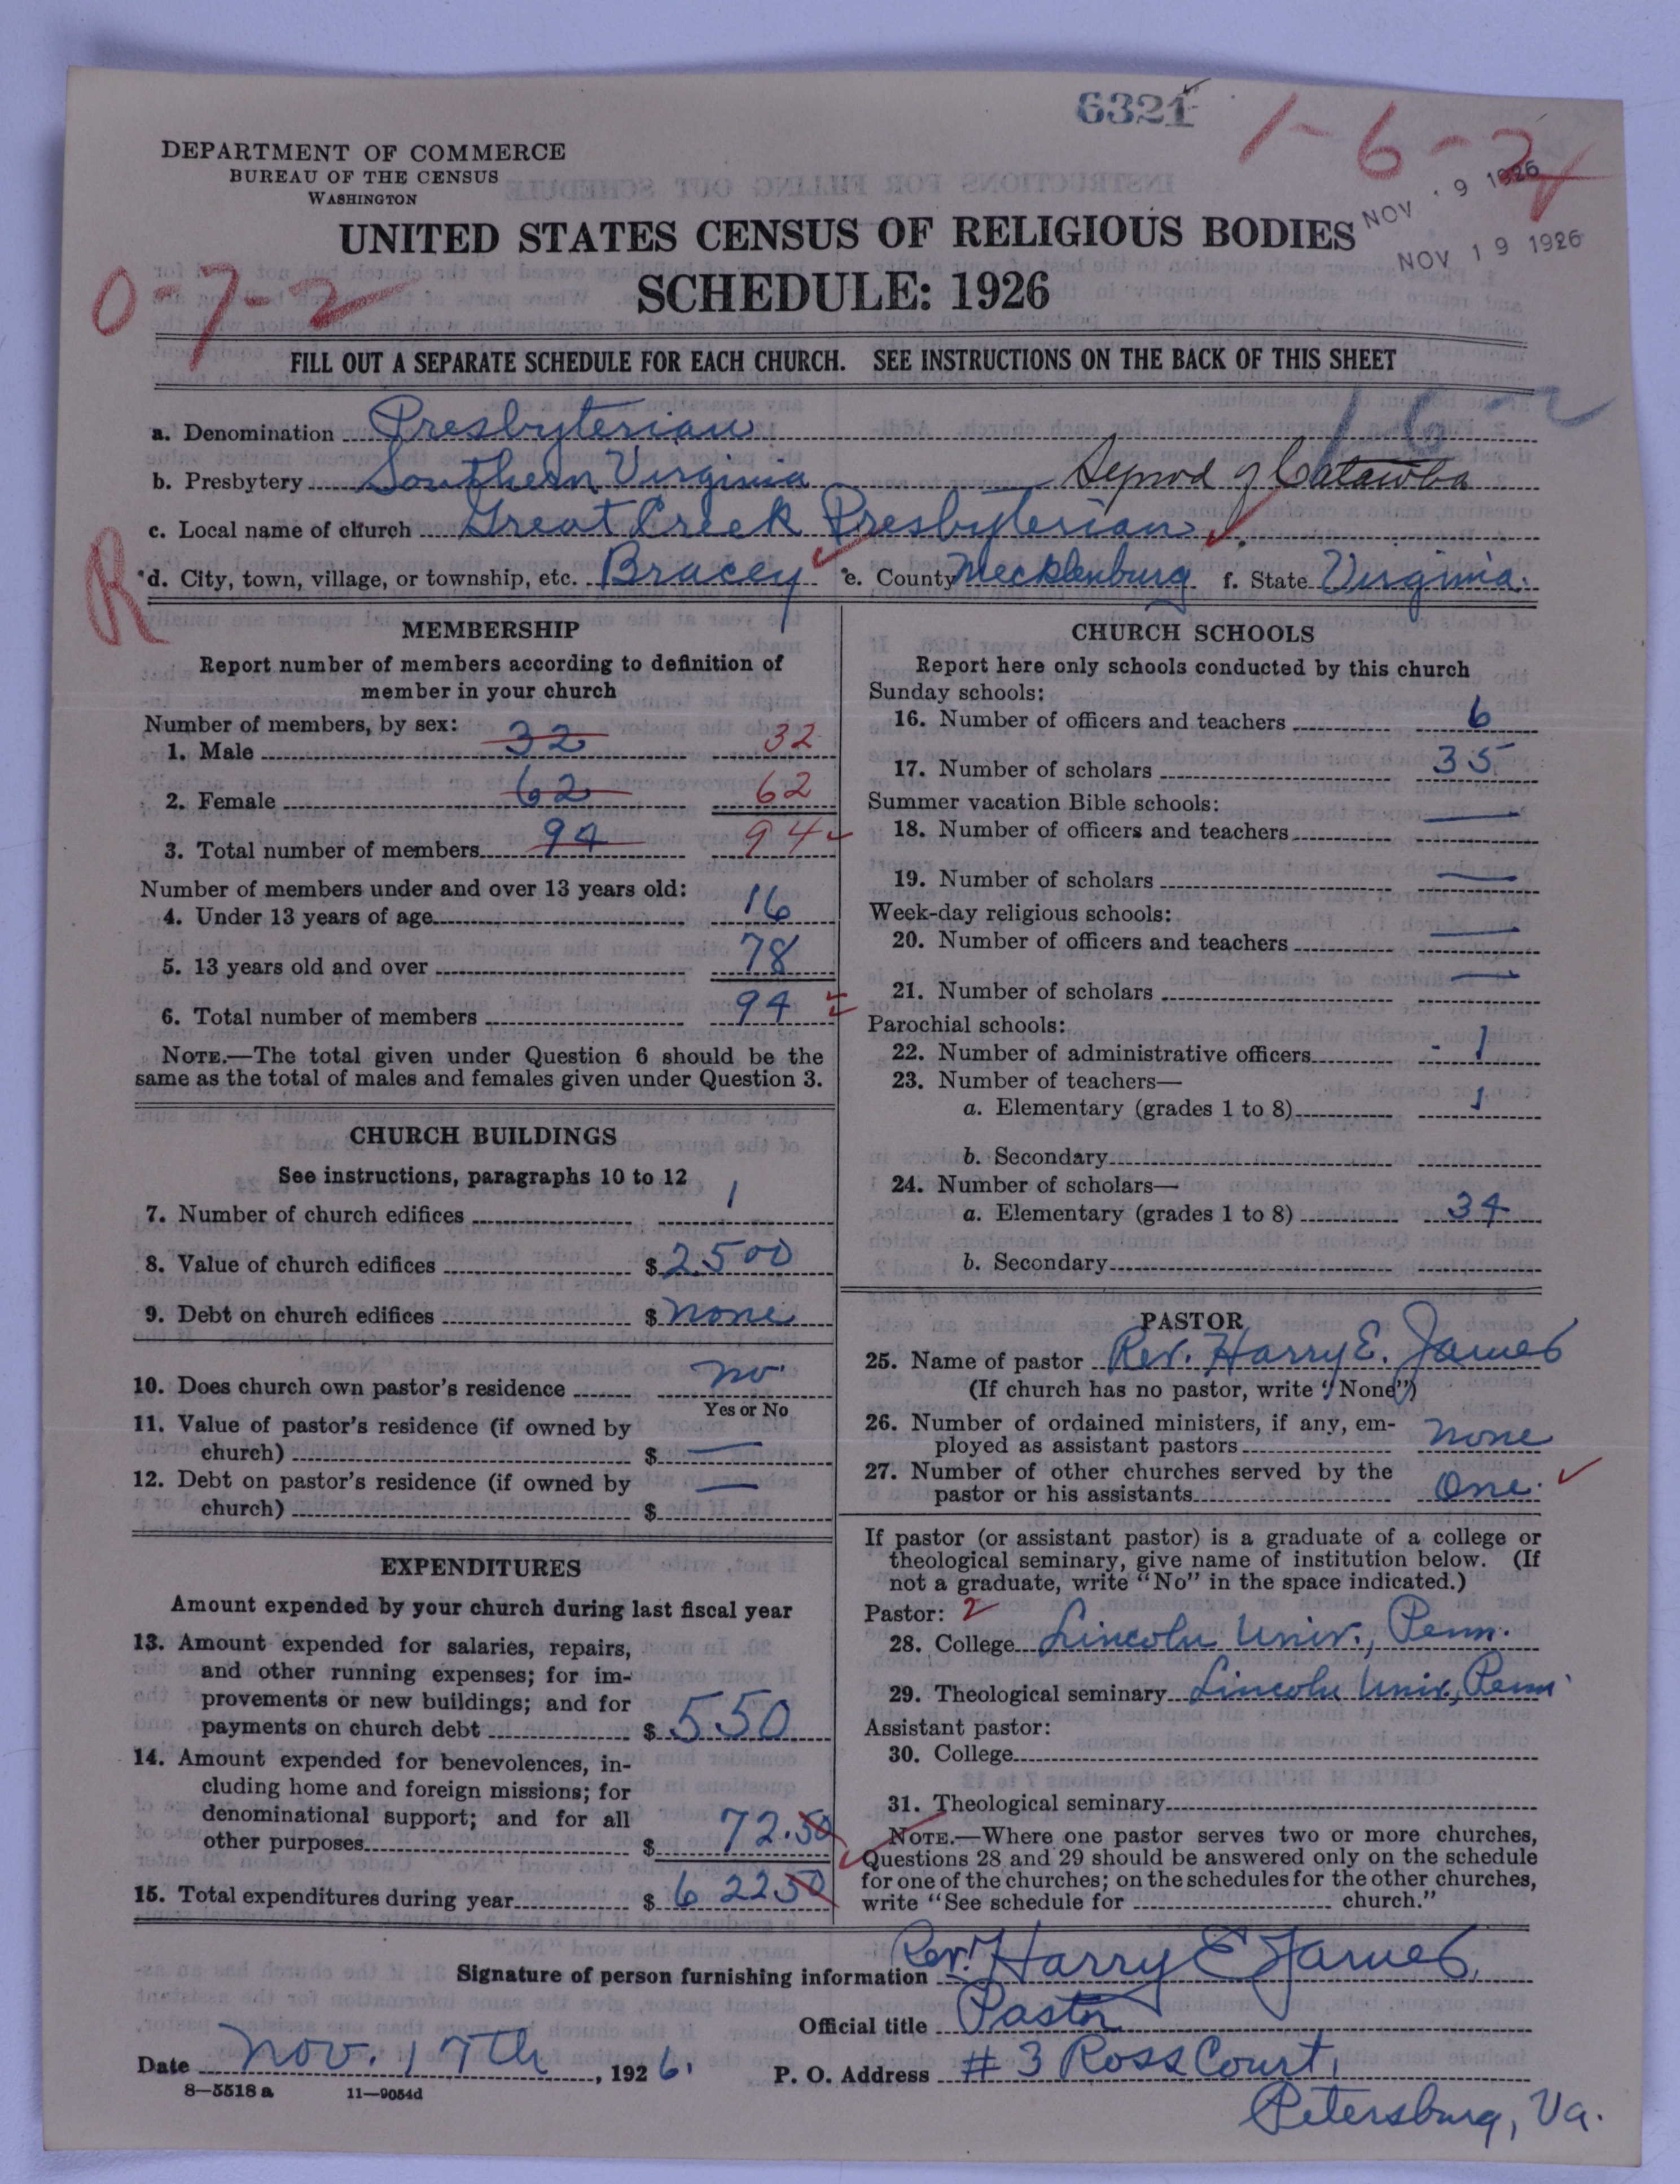 6321
1-6-2
DEPARTMENT OF COMMERCE
BUREAU OF THE CENSUS
WASHINGTON
NOV 19 1926
NOV 19 1926
UNITED STATES CENSUS OF RELIGIOUS BODIES
SCHEDULE: 1926
0-7-2
FILL OUT A SEPARATE SCHEDULE FOR EACH CHURCH. SEE INSTRUCTIONS ON THE BACK OF THIS SHEET
a. Denomination Presbyterian
b. Presbytery Southern Virginia Synod of Catawba
c. Local name of church Great Creek Presbyterian
R
d. City, town, village, or township, etc. Bracey e. County Mecklenburg f. State Virginia
MEMBERSHIP
Report number of members according to definition of
member in your church
Number of members, by sex:
1. Male 32 32
2. Female 62 62
3. Total number of members 94 94
Number of members under and over 13 years old:
4. Under 13 years of age 16
5. 13 years old and over 78
6. Total number of members 94
NOTE.—The total given under Question 6 should be the
same as the total of males and females given under Question 3.
CHURCH BUILDINGS
See instructions, paragraphs 10 to 12
7. Number of church edifices 1
8. Value of church edifices $2500
9. Debt on church edifices $none
10. Does church own pastor's residence no
Yes or No
11. Value of pastor's residence (if owned by
church) $ —
12. Debt on pastor's residence (if owned by
church) $ —
EXPENDITURES
Amount expended by your church during last fiscal year
13. Amount expended for salaries, repairs,
and other running expenses; for im-
provements or new buildings; and for
payments on church debt $550
14. Amount expended for benevolences, in-
cluding home and foreign missions; for
denominational support; and for all
other purposes $72.50
15. Total expenditures during year $62250
CHURCH SCHOOLS
Report here only schools conducted by this church
Sunday schools:
16. Number of officers and teachers 6
17. Number of scholars 35
Summer vacation Bible schools:
18. Number of officers and teachers —
19. Number of scholars —
Week-day religious schools:
20. Number of officers and teachers —
21. Number of scholars —
Parochial schools:
22. Number of administrative officers - 1
23. Number of teachers—
a. Elementary (grades 1 to 8) 1
b. Secondary
24. Number of scholars—
a. Elementary (grades 1 to 8) 34
b. Secondary
PASTOR
25. Name of pastor Rev. Harry E. James
(If church has no pastor, write "None")
26. Number of ordained ministers, if any, em-
ployed as assistant pastors none
27. Number of other churches served by the
pastor or his assistants One.
If pastor (or assistant pastor) is a graduate of a college or
theological seminary, give name of institution below. (If
not a graduate, write "No" in the space indicated.)
Pastor: 2
28. College Lincoln Univ., Penn.
29. Theological seminary Lincoln Univ., Penn
Assistant pastor:
30. College
31. Theological seminary
NOTE.—Where one pastor serves two or more churches,
Questions 28 and 29 should be answered only on the schedule
for one of the churches; on the schedules for the other churches,
write "See schedule for church."
Signature of person furnishing information Rev. Harry E James,
Official title Pastor
Date Nov. 17th, 1926. P. O. Address #3 Ross Court,
8—5518 a 11—9054d
Petersburg, Va.